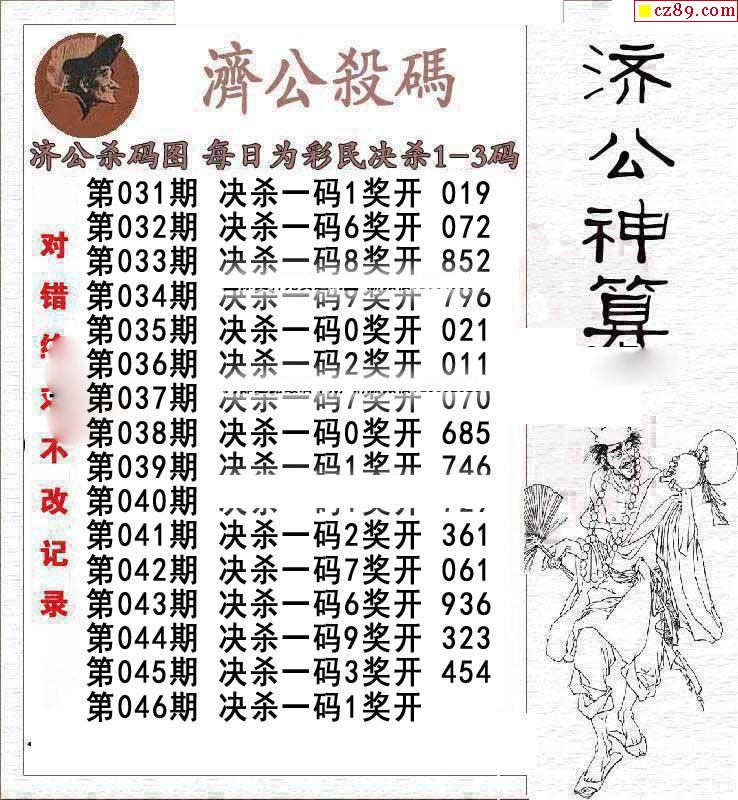 cz89.com
濟公殺碼
济公杀码图 每日为彩民决杀1-3码
第031期 决杀一码1奖开 019
第032期 决杀一码6奖开 072
第033期 决杀一码8奖开 852
第034期 决杀一码9奖开 796
第035期 决杀一码0奖开 021
第036期 决杀一码2奖开 011
第037期 决杀一码7奖开 070
第038期 决杀一码0奖开 685
第039期 决杀一码1奖开 746
第040期
第041期 决杀一码2奖开 361
第042期 决杀一码7奖开 061
第043期 决杀一码6奖开 936
第044期 决杀一码9奖开 323
第045期 决杀一码3奖开 454
第046期 决杀一码1奖开
对错绝对不改记录
济公神算